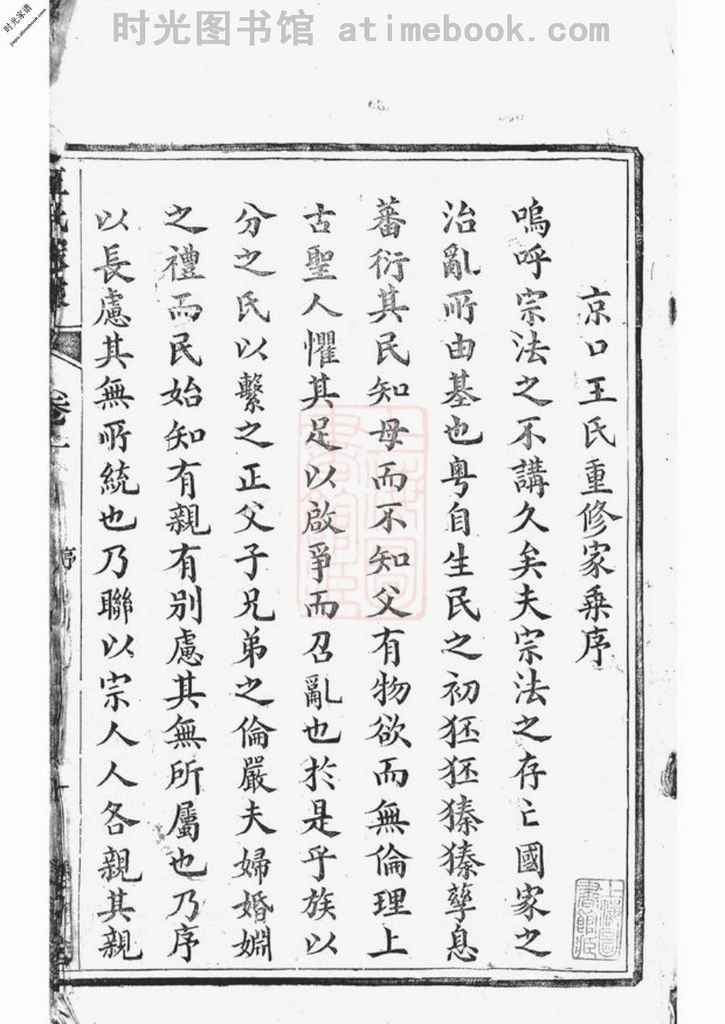 时光图书馆 atimebook.com
时光家谱
京口王氏重修家乗序
嗚呼宗法之不講久矣夫宗法之存亡國家之
治亂所由基也粤自生民之初狉狉獉獉孳息
蕃衍其民知母而不知父有物欲而無倫理上
古聖人懼其足以啟爭而召亂也於是乎族以
分之氏以繫之正父子兄弟之倫嚴夫婦婚姻
之禮而民始知有親有别慮其無所屬也乃序
以長慮其無所統也乃聯以宗人人各親其親
卷一
序
上海圖書館藏